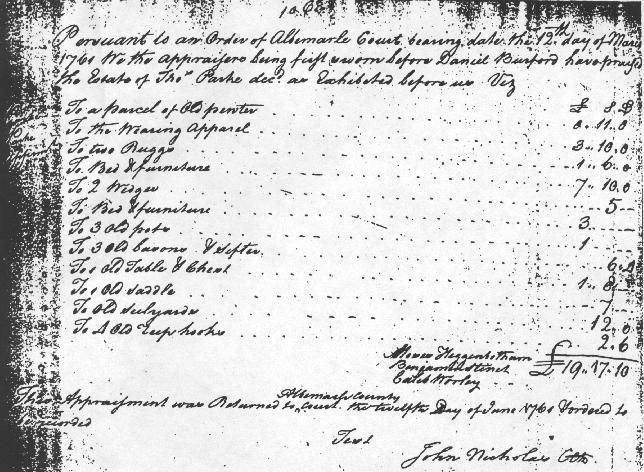 Persuant to an Order of Albemarle Court bearing date the 12th day of
1761 We the Appraisers being first sworn before Daniel Burford have
the Estate of Thos Parke decd as Exhibited before us Viz
£ S D
To a Parcel of Old pewter 0.. 11.. 0
To the Wearing Apparel 3.. 10.. 0
To two Ruggs 1.. 6.. 0
To Bed & furniture 7.. 10.. 0
To 2 Wedges 5
To Bed & furniture 3
To 3 Old pots 1
To 3 Old basons & Sifter
To 1 Old Table & Chest
To 1 Old Saddle 7
To Old
To 4 Old reep hooks 2.. 6
Moses Higgenbotham
Benjamin Stinet £19.. 17.. 10
Caleb Worley
Albemarle County
This Appraisment was Returned to Court the twelfth Day of June 1761 & ordered to
recorded
Test
John Nicholas